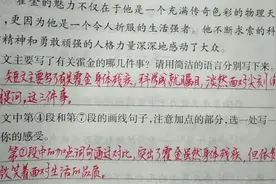 霍金的魅力不仅在于他是一个充满传奇色彩的物理天
,更因为他是一个令人折服的生活强者。他不断求索的科
精神和勇敢顽强的人格力量深深地感动了大众。
文主要写了有关霍金的哪几件事?请用简洁的语言分别写下来。
短文主要写了霍金身体残疾,科学成就瞩目,淡然面对尖刻的
提问,这三件事。
文中第④段和第⑦段的画线句子,注意加点的部分,选一处写一
你的感受。
第④段中加点词句通过对比,突出了霍金虽然身体残疾,但依然
微笑着面对生活的品质。